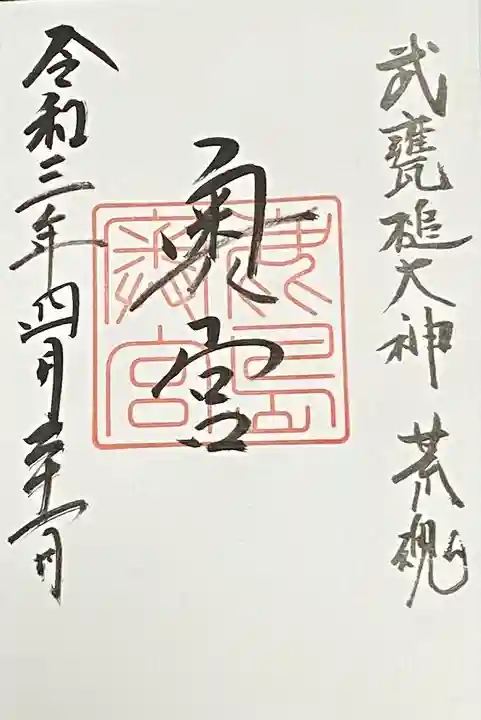 武甕槌大神 荒魂
奥宮
鹿島神宮
令和三年四月二十一日